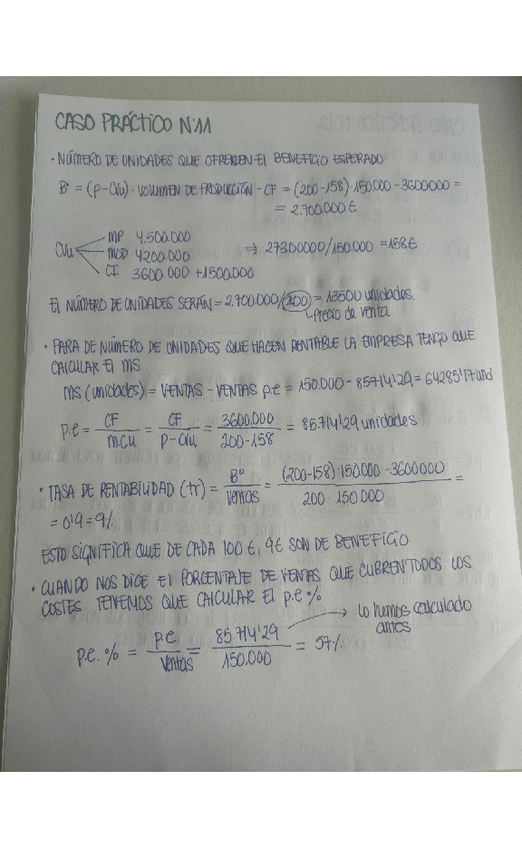 CASO PRÁCTICO Nº11
· NÚMERO DE UNIDADES QUE OFRECEN EL BENEFICIO ESPERADO
Bº = (p-CVu) · VOLUMEN DE PRODUCCIÓN - CF = (200-158)·150.000-3600000 =
= 2.700.000 €
CVu
MP 4.500.000
MOD 4200.000
CI 3600.000 +1500.000
⇒ 27300000/150.000 = 158€
El NÚMERO DE UNIDADES SERÁN = 2.700.000/200 = 13500 unidades.
Precio de venta
· PARA DE NÚMERO DE UNIDADES QUE HACEN RENTABLE LA EMPRESA TENGO QUE
CALCULAR El MS
MS (unidades) = VENTAS - VENTAS p.e = 150.000 - 85714'29 = 64285'17 und
p.e = CF/mcu = CF/p-CVu = 3600.000/200-158 = 85.714'29 unidades
· TASA DE RENTABILIDAD (tr) = Bº/ventas = (200-158)·150.000-3600000/200·150.000 =
= 0'9 = 9%
ESTO SIGNIFICA QUE DE CADA 100 €, 9€ SON DE BENEFICIO
· CUANDO NOS DICE El PORCENTAJE DE VENTAS QUE CUBREN TODOS LOS
COSTES TENEMOS QUE CALCULAR El p.e %
lo hemos calculado
antes
p.e. % = p.e/ventas = 85.714'29/150.000 = 57%